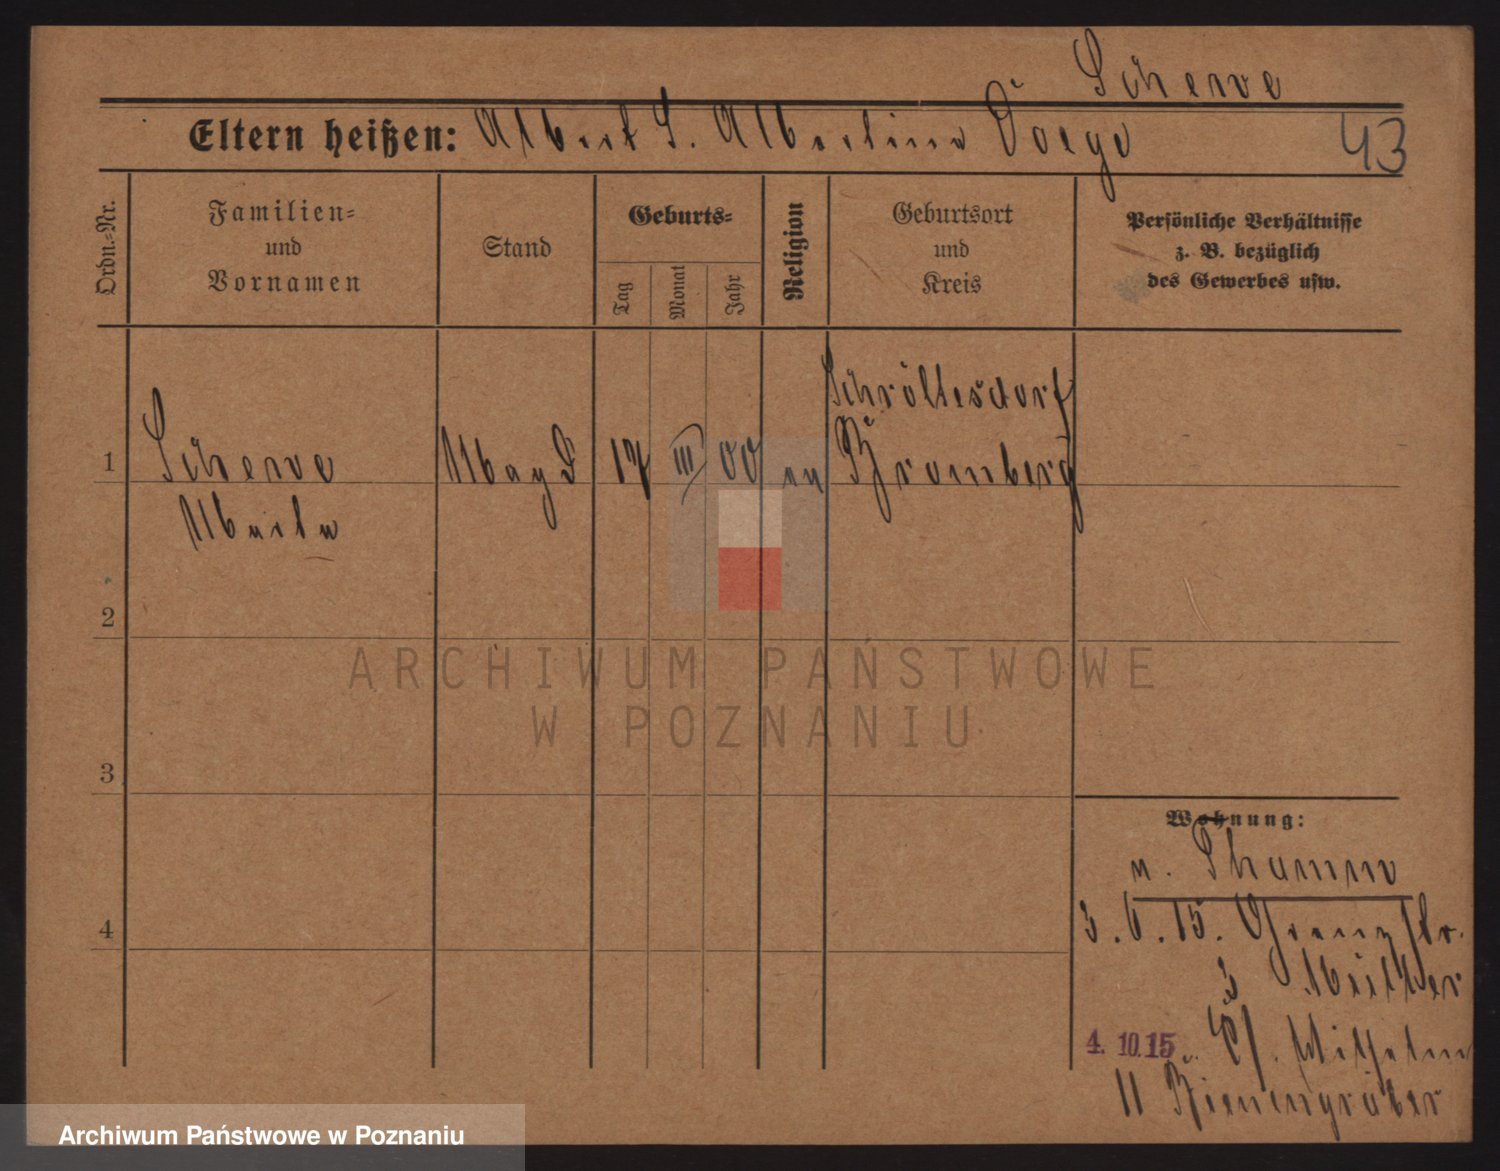 Scherve
Eltern heißen: Albert S. Albertine Doege
43
Ordn.-Nr.
Familien- und Vornamen
Stand
Geburts-
Tag
Monat
Jahr
Religion
Geburtsort und Kreis
Persönliche Verhältnisse
z. B. bezüglich
des Gewerbes usw.
1
Scherve
Magd
17 III 00
ev
Schröttesdorf
Bromberg
2
3
4
Wohnung:
n.
3.6.15. Grenzstr.
3
4.10.15
Wilhelm
11 Bienengräber
ARCHIWUM PAŃSTWOWE
W POZNANIU
Archiwum Państwowe w Poznaniu